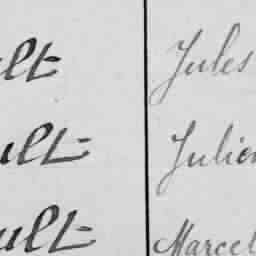 ult Jules
ult Julien
ault Marcel